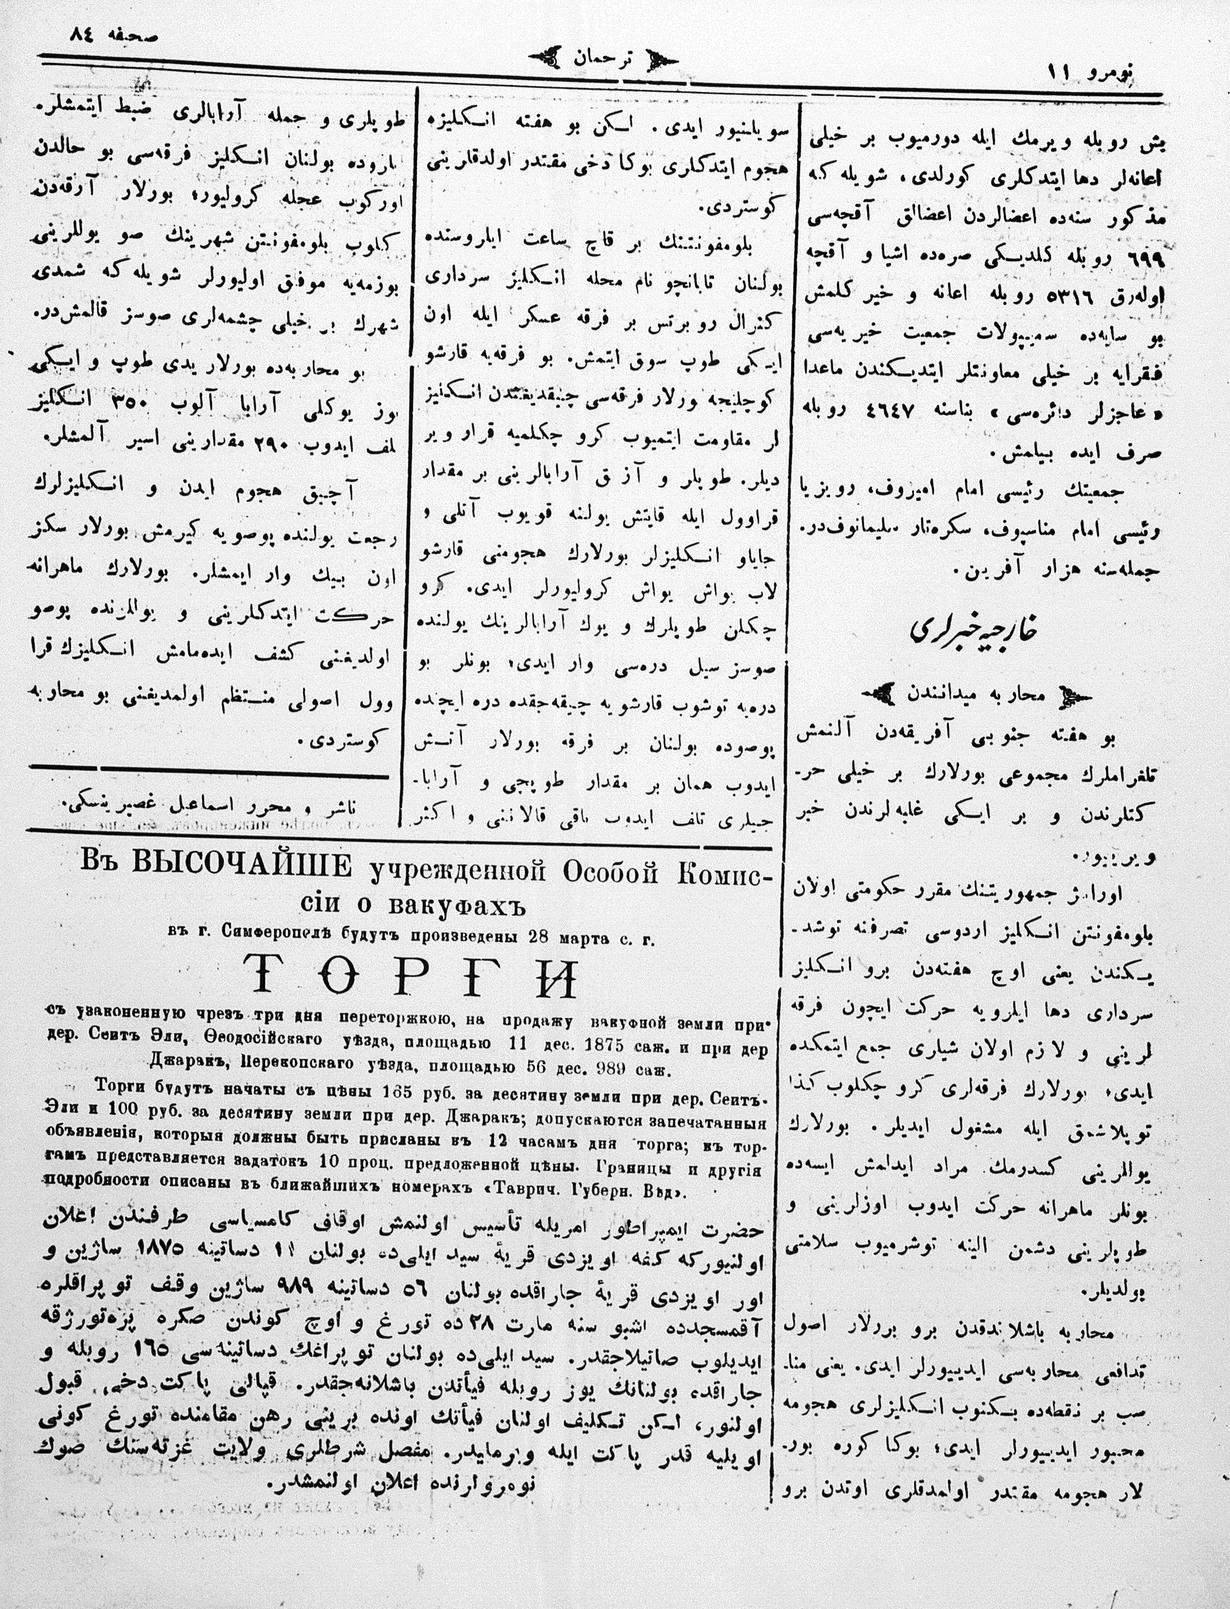 نومرو ١١
ترجمان
صحيفه ٨٤
يش روبله ويرمك ايله دورميوب بر خيلى
اعانه‌لر دها ايتدكلرى كورلدى، شويله كه
مذكور سنه‌ده اعضالردن اعضالق آقچه‌سى
٦٩٩ روبله كلديكى صره‌ده اشيا و آقچه
اوله‌رق ٥٣١٦ روبله اعانه و خير كلمش
بو سايه‌ده سميپولات جمعيت خيريه‌سى
فقرايه بر خيلى معاونتلر ايتديكندن ماعدا
«عاجزلر دائره‌سى» بناسنه ٤٦٤٧ روبله
صرف ايده بيلمش.
جمعيتك رئيسى امام اميروف، رويزيا
رئيسى امام مناسپوف، سكره‌تار سليمانوف‌در.
جمله‌سنه هزار آفرين.
خارجيه خبرلرى
محاربه ميدانندن
بو هفته جنوبى آفريقه‌دن آلنمش
تلغراملرك مجموعى بورلارك بر خيلى حر-
كتلرندن و بر ايكى غلبه‌لرندن خبر
ويرييور.
اورانژ جمهوريتنك مقرر حكومتى اولان
بلومفونتن انكليز اردوسى تصرفنه توشد-
يكندن يعنى اوچ هفته‌دن برو انكليز
سردارى دها ايلرويه حركت ايچون فرقه
لرينى و لازم اولان شيارى جمع ايتمكده
ايدى؛ بورلارك فرقه‌لرى كرو چكلوب كذا
توپلاشمق ايله مشغول ايديلر. بورلارك
يوللرينى كسدرمك مراد ايدلمش ايسه‌ده
بونلر ماهرانه حركت ايدوب اوزلرينى و
طوپلرينى دشمن الينه توشرميوب سلامتى
بولديلر.
محاربه باشلاندقدن برو بورلار اصول
تدافعى محاربه‌سى ايدييورلر ايدى. يعنى منا-
سب بر نقطه‌ده بكنوب انكليزلرى هجومه
مجبور ايدييورلر ايدى؛ بوكا كوره بور-
لار هجومه مقتدر اولمدقلرى اوتدن برو
سويلنيور ايدى. لكن بو هفته انكليزه
هجوم ايتدكلرى بوكا دخى مقتدر اولدقلرينى
كوستردى.
بلومفونتنك بر قاچ ساعت ايلروسنده
بولنان تابانچو نام محله انكليز سردارى
كنرال روبرتس بر فرقه عسكر ايله اون
ايكى طوپ سوق ايتمش. بو فرقه‌يه قارشو
كوچليجه بورلار فرقه‌سى چيقديغندن انكليز
لر مقاومت ايتميوب كرو چكلميه قرار وير
ديلر. طوپلر و آزق آرابالرينى بر مقدار
قراوول ايله قايتش يولنه قويوب آتلى و
جاياو انكليزلر بورلارك هجومنى قارشو
لاب يواش يواش كروليورلر ايدى. كرو
چكلن طوپلرك و يوك آرابالرينك يولنده
صوسز سيل دره‌سى وار ايدى؛ بونلر بو
دره‌يه توشوب قارشويه چيقه‌جقده دره ايچنده
پوصوده بولنان بر فرقه بورلار آتش
ايدوب همان بر مقدار طوپجى و آرابا-
جيلرى تلف ايدوب باقى قالاننى و اكثر
طوپلرى و جمله آرابالرى ضبط ايتمشلر.
بولنان انكليز فرقه‌سى بو حالدن
اوركوب عجله كروليور؛ بورلار آرقه‌دن
كلوب بلومفونتن شهرينك صو يوللرينى
بوزمه‌يه موفق اوليورلر شويله كه شمدى
شهرك بر خيلى چشمه‌لرى صوسز قالمش‌در.
بو محاربه‌ده بورلار يدى طوپ و ايكى
يوز يوكلى آرابا آلوب ٣٥٠ انكليز
تلف ايدوب ٢٩٠ مقدارينى اسير آلمشلر.
آچيق هجوم ايدن و انكليزلرك
رجعت يولنده پوصويه كيرمش بورلار سكز
اون بيك وار ايمشلر. بورلارك ماهرانه
حركت ايتدكلرينى و يوللرنده پوصو
اولديغنى كشف ايده‌مامش انكليزك قرا
وول اصولى منتظم اولمديغنى بو محاربه
كوستردى.
ناشر و محرر اسماعيل غصپرينسكى.
Въ ВЫСОЧАЙШЕ учрежденной Особой Комис-
сіи о вакуфахъ
въ г. Симферополѣ будутъ произведены 28 марта с. г.
ТОРГИ
съ узаконенную чрезъ три дня переторжкою, на продажу вакуфной земли при-
дер. Сеитъ Эли, Ѳеодосійскаго уѣзда, площадью 11 дес. 1875 саж. и при дер
Джаракъ, Перекопскаго уѣзда, площадью 56 дес. 989 саж.
Торги будутъ начаты съ цѣны 165 руб. за десятину земли при дер. Сеитъ-
Эли и 100 руб. за десятину земли при дер. Джаракъ; допускаются запечатанныя
объявленія, которыя должны быть присланы къ 12 часамъ дня торга; къ тор-
гамъ представляется задатокъ 10 проц. предложенной цѣны. Границы и другія
подробности описаны въ ближайшихъ номерахъ «Таврич. Губерн. Вѣд».
حضرت ايمپراطور امريله تأسيس اولنمش اوقاف كامسياسى طرفندن اعلان
اولنيوركه كفه اويزدى قريهٔ سيد ايلى‌ده بولنان ١١ دساتينه ١٨٧٥ ساژين و
اور اويزدى قريهٔ جاراقده بولنان ٥٦ دساتينه ٩٨٩ ساژين وقف توپراقلره
آقمسجدده اشبو سنه مارت ٢٨ ده تورغ و اوچ كوندن صكره پره‌تورژقه
ايديلوب صاتيلاجقدر. سيد ايلى‌ده بولنان توپراغك دساتينه‌سى ١٦٥ روبله و
جاراقده بولنانك يوز روبله فيأتدن باشلانه‌جقدر. قپالى پاكت دخى قبول
اولنور، لكن تكليف اولنان فيأتك اونده برينى رهن مقامنده تورغ كونى
اويليه قدر پاكت ايله ويرمليدر. مفصل شرطلرى ولايت غزته‌سنك صوك
نومرولرنده اعلان اولنمشدر.